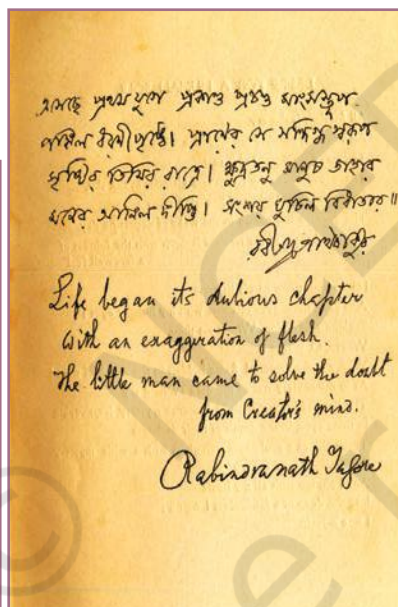 এসেছে প্রথম যুগে প্রকাণ্ড প্রচণ্ড মাংসস্তূপ
পঙ্কিল ধরণীপৃষ্ঠে। প্রাণের সে সন্দিগ্ধ স্বরূপ
সৃষ্টির তিমির রাত্রে। ক্ষুদ্রতনু মানুষ তাহার
মনের আনিল দীপ্তি। সংশয় ঘুচিল বিধাতার॥
রবীন্দ্রনাথ ঠাকুর
Life began its dubious chapter
with an exaggeration of flesh.
The little man came to solve the doubt
from Creator's mind.
Rabindranath Tagore